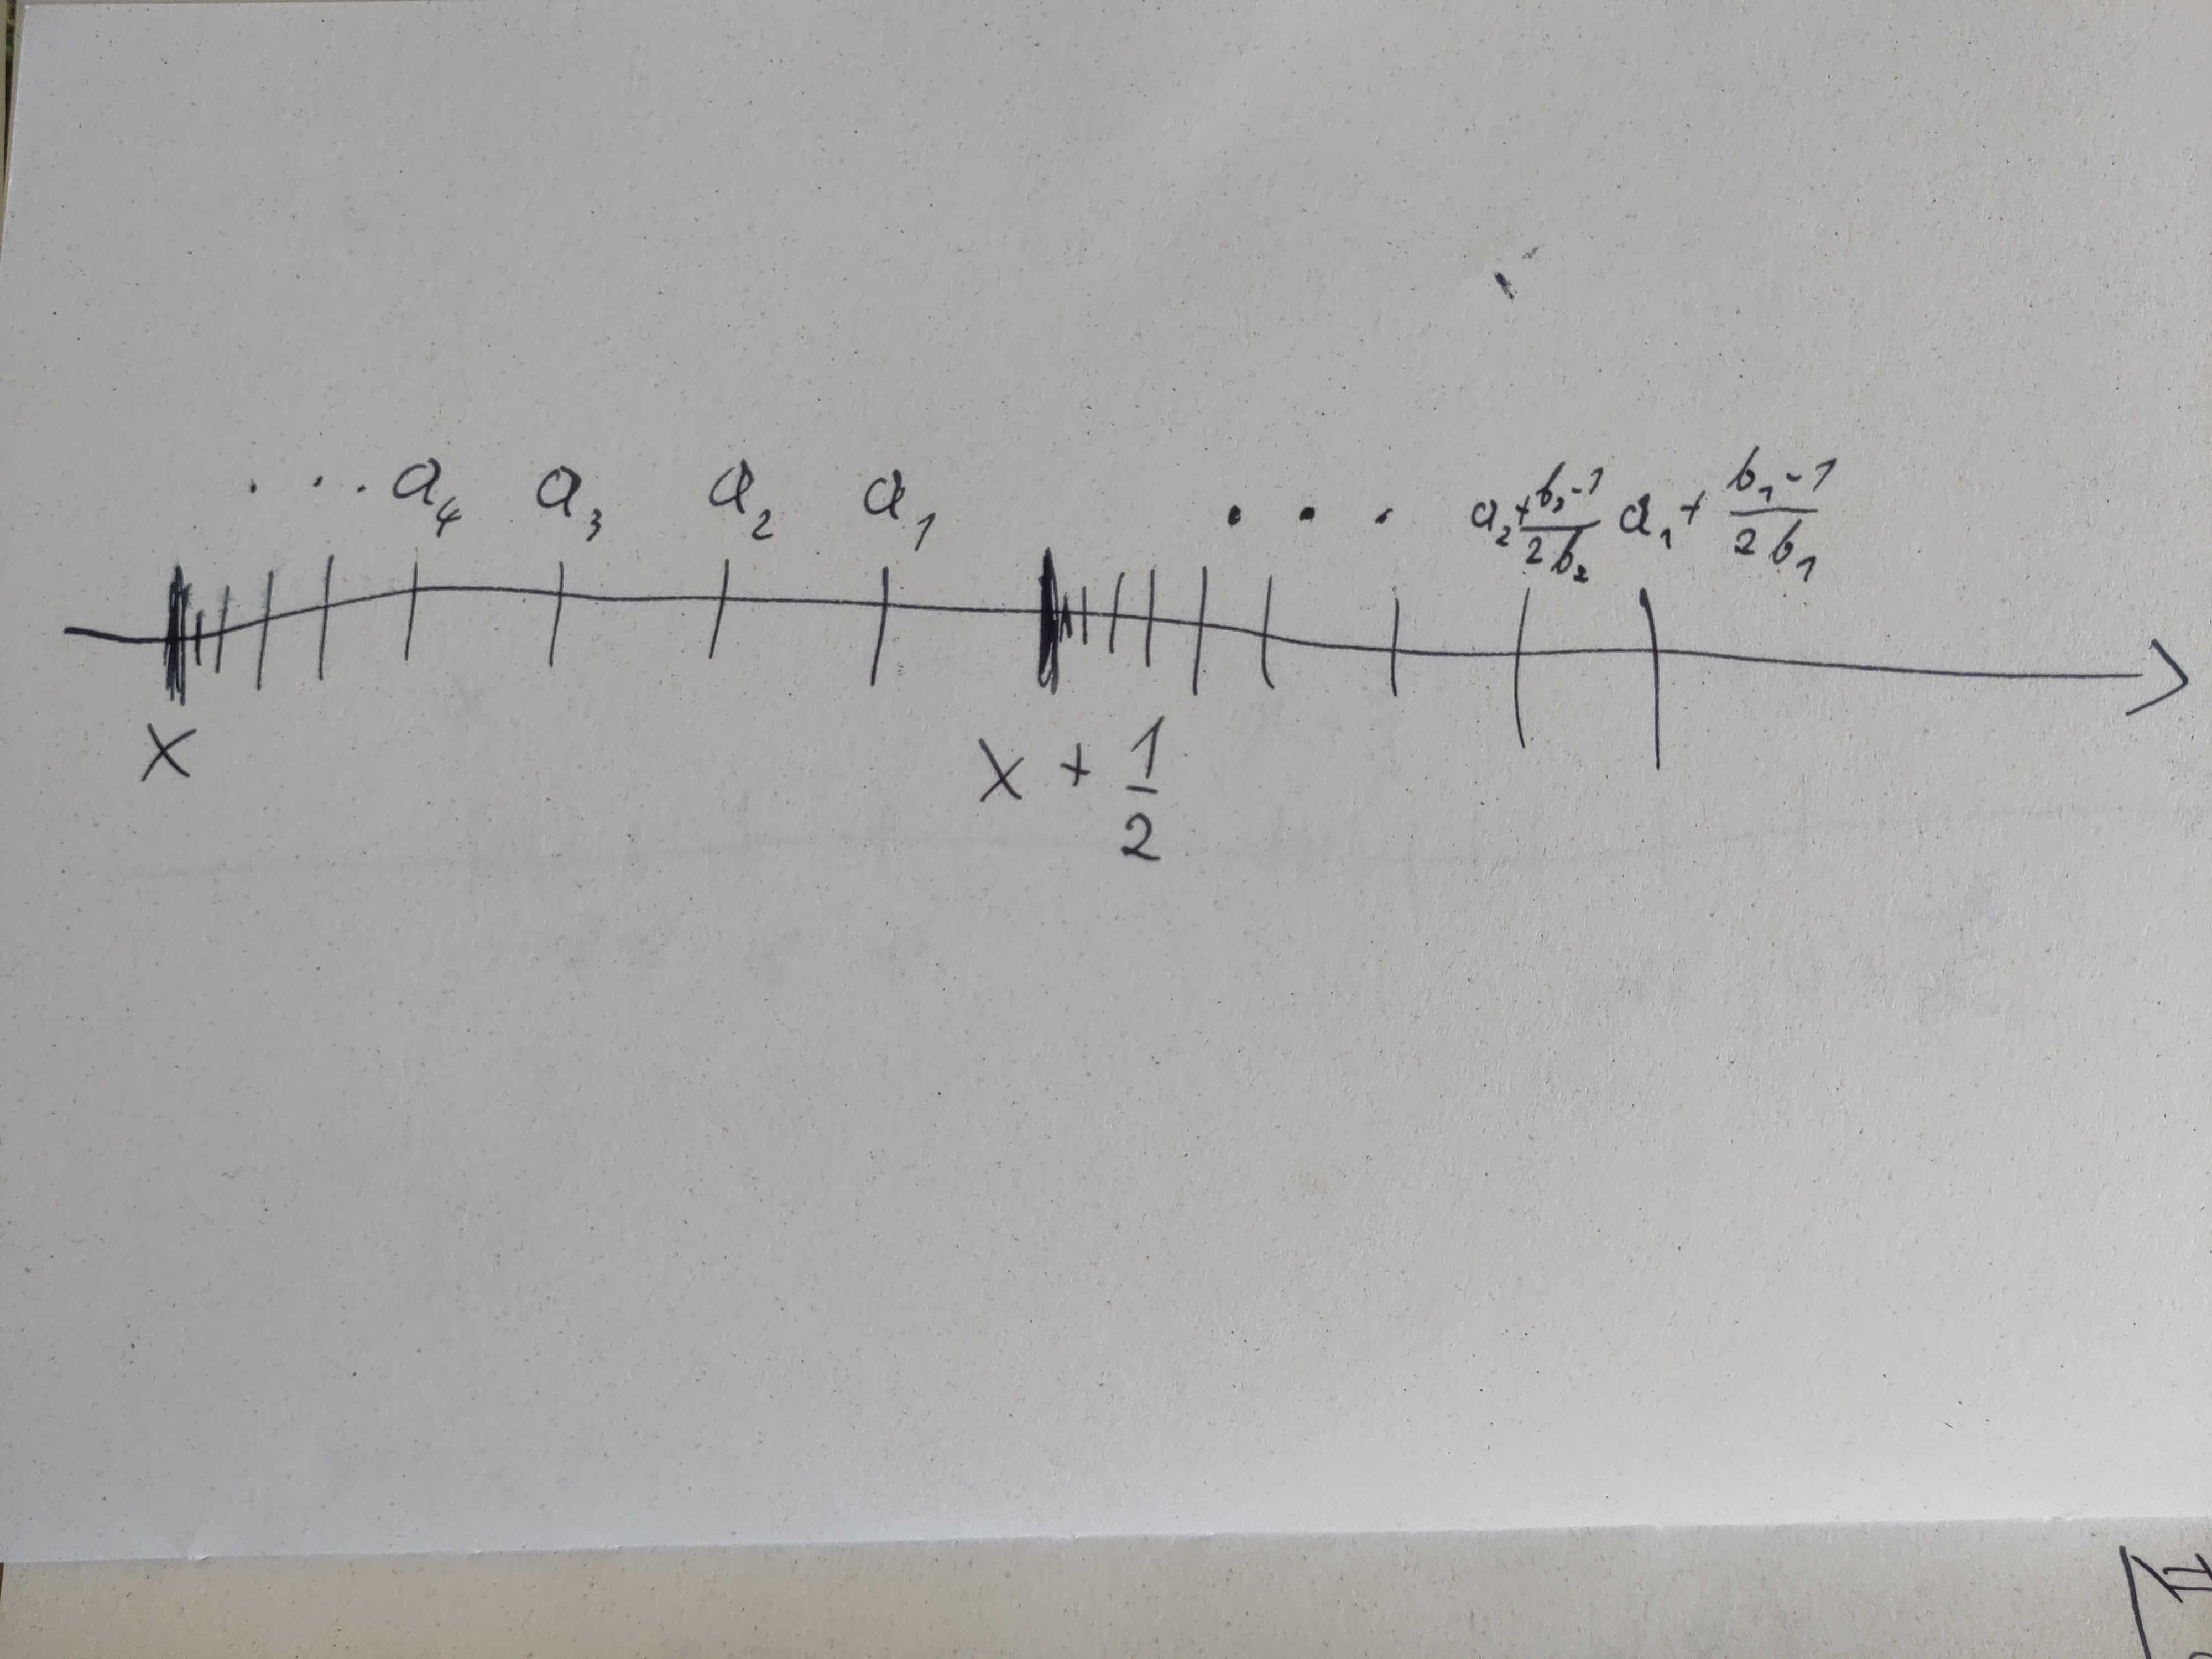 . . . a₄ a₃ a₂ a₁ . . . a₂+(b₂-1)/(2b₂) a₁+(b₁-1)/(2b₁)
x x + 1/2